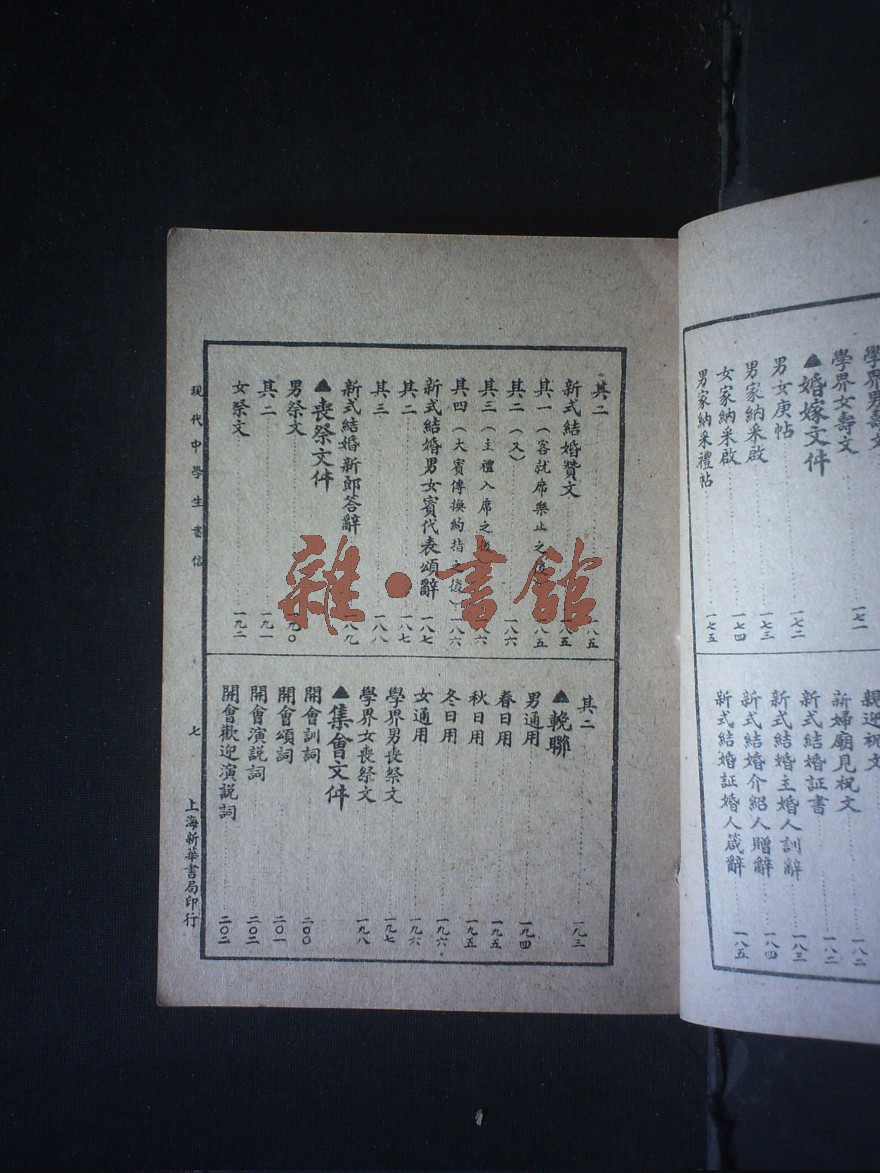 學界男壽文
學界女壽文 一七一
▲婚嫁文件
男女庚帖 一七二
男家納采啟 一七三
女家納采啟 一七四
男家納采禮帖 一七五
親迎祝文 一八二
新婦廟見祝文 一八二
新式結婚証書
新式結婚主婚人訓辭 一八三
新式結婚介紹人贈辭 一八四
新式結婚証婚人箴辭 一八五
其二 一八五
新式結婚贊文 一八五
其一(客就席樂止之後) 一八五
其二(又) 一八六
其三(主禮入席之後) 一八六
其四(大賓傳換約指之後) 一八六
新式結婚男女賓代表頌辭 一八七
其二 一八七
其三 一八八
新式結婚新郎答辭 一八九
▲喪祭文件
男祭文 一九〇
其二 一九一
女祭文 一九二
其二 一九三
▲輓聯
男通用 一九四
春日用 一九五
秋日用 一九五
冬日用 一九六
女通用 一九六
學界男喪祭文 一九七
學界女喪祭文 一九八
▲集會文件
開會訓詞 二〇〇
開會頌詞 二〇一
開會演説詞 二〇二
開會歡迎演説詞 二〇二
現代中學生書信
七
上海新華書局印行
雜·書館